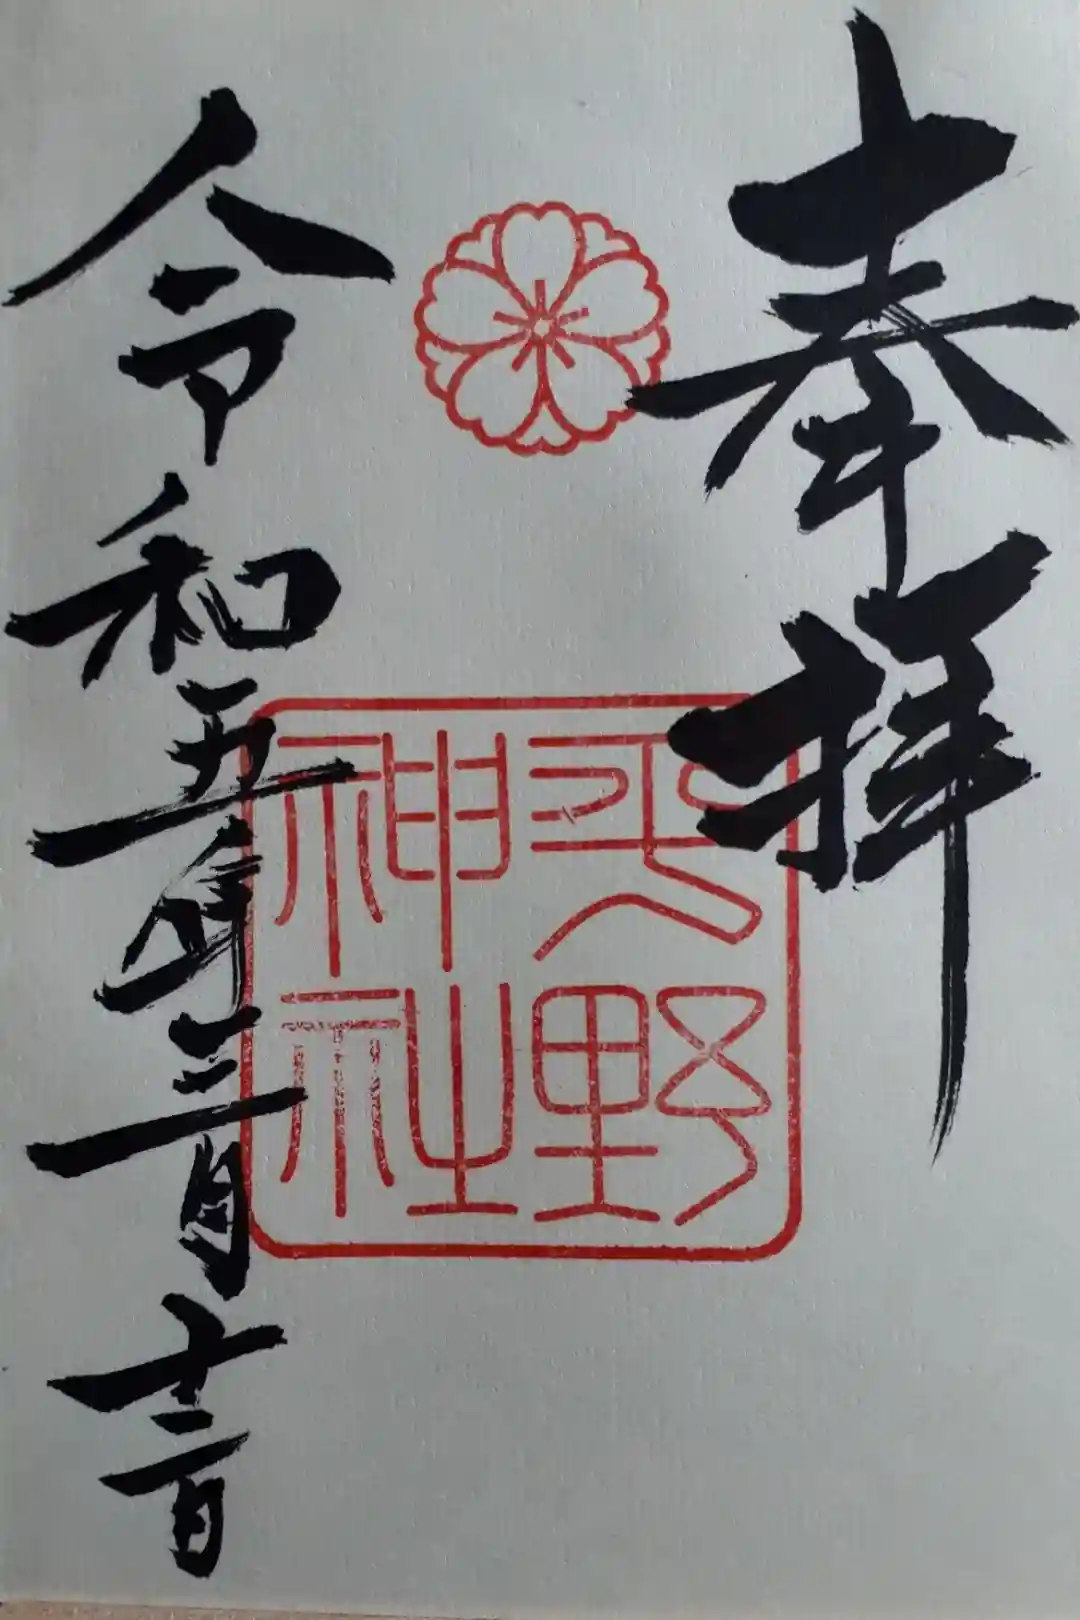 奉拝
平野
神社
令和五年三月十二日